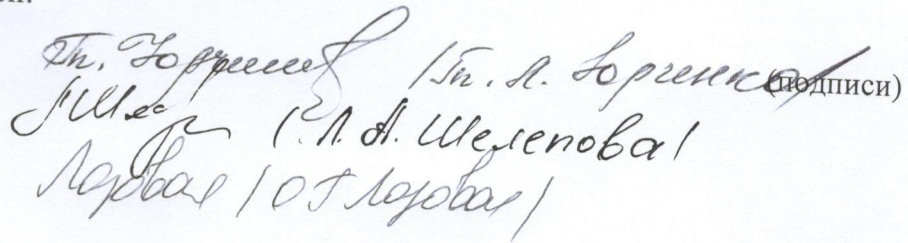 /Тп. А. Юрченко/ (подписи)
Л. А. Шелепова/
Лозовая /О Г Лозовая/